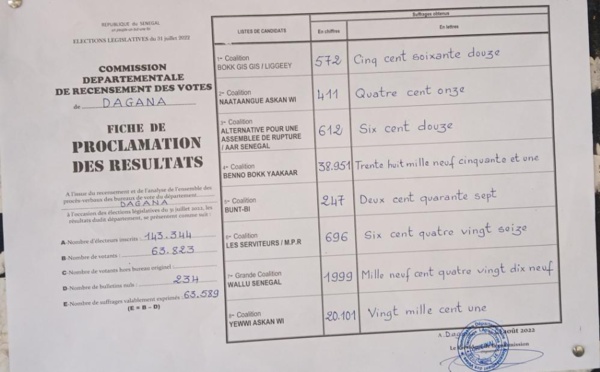 REPUBLIQUE DU SENEGAL
ELECTIONS LEGISLATIVES du 31 juillet 2022
COMMISSION
DEPARTEMENTALE
DE RECENSEMENT DES VOTES
de DAGANA
FICHE DE
PROCLAMATION
DES RESULTATS
A l'issue du recensement et de l'analyse de l'ensemble des
procès-verbaux des bureaux de vote du département
DAGANA
à l'occasion des élections législatives du 31 juillet 2022, les
résultats dudit département, se présentent comme suit :
A-Nombre d'électeurs inscrits : 143.344
B- Nombre de votants : 63.823
C- Nombre de votants hors bureau originel :
D- Nombre de bulletins nuls : 234
E-Nombre de suffrages valablement exprimés : 63.589
(E = B – D)
Suffrages obtenus
LISTES DE CANDIDATS En chiffres En lettres
1re Coalition
BOKK GIS GIS / LIGGEEY 572 Cinq cent soixante douze
2e Coalition
NAATAANGUE ASKAN WI 411 Quatre cent onze
3e Coalition
ALTERNATIVE POUR UNE
ASSEMBLEE DE RUPTURE
/ AAR SENEGAL 612 Six cent douze
4e Coalition
BENNO BOKK YAAKAAR 38.951 Trente huit mille neuf cinquante et une
5e Coalition
BUNT-BI 247 Deux cent quarante sept
6e Coalition
LES SERVITEURS / M.P.R 696 Six cent quatre vingt seize
7e Grande Coalition
WALLU SENEGAL 1999 Mille neuf cent quatre vingt dix neuf
8e Coalition
YEWWI ASKAN WI 20.101 Vingt mille cent une
août 2022